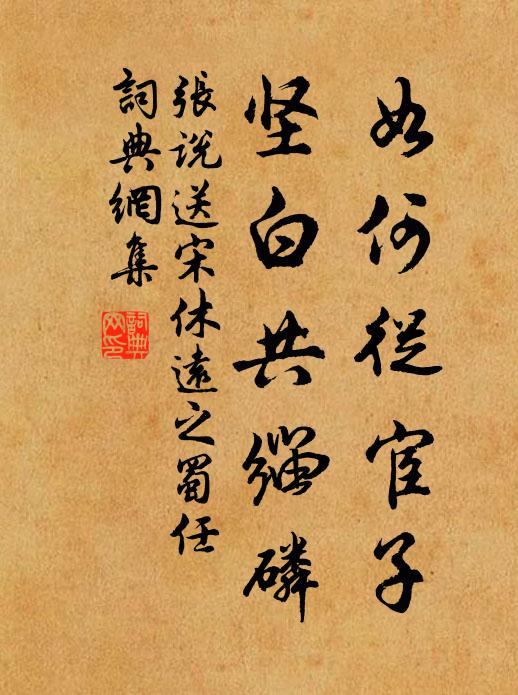 如何從宦子
坚白共緇磷
張說送宋休遠之蜀任
詞典網集
詞典網印